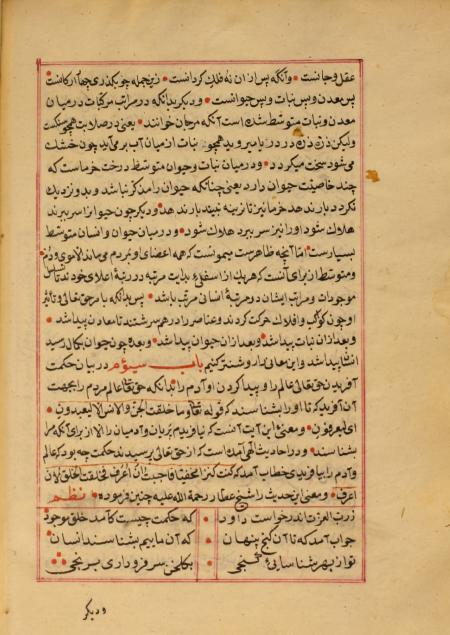 عقل و جانست • و آنکه پس از ان نه فلك کردانست • زین جمله چو بکذری چهار ارکانست
پس معدن و پس نبات و پس حیوانست • و دیکر بدانکه در مراتب مرکبات درمیان
معدن و نبات متوسط شده است آنکه مرجان خوانند • یعنی در صلابت همچو سنکست
ولیکن ذره ذره در دریا میروید همچو نبات از میان آب بر می آید چون خشك
می شود سخت میکردد • و درمیان نبات و حیوان متوسط درخت خرماست که
چند خاصیت حیوان دارد یعنی چنانکه حیوان را مذکر نباشد و بدو نزدیك
نکردد بار ندهد خرما نیز تا نرینه نبیند بار ندهد • و دیکر چون حیوانرا سر ببرند
هلاك شود او را نیز سر ببرد هلاك شود • و درمیان حیوان و انسان متوسط
بسیارست • امّا آنچه ظاهرست میمونست که همه اعضای او بمردم می ماند
و متوسط از برای آنست که هر یك از اسفل بدایت مرتبه در رتبهٔ اعلای خودند تا
موجودات و مراتب ایشان در مرتبهٔ انسانی مرتب باشد • پس بدانکه بامر حق تعالی و تأثیر
او چون کواکب و افلاك حرکت کردند و عناصر را درهم سرشتند تا معادن پیدا شد •
و بعد از ان نبات پیدا شد • و بعد از ان حیوان پیدا شد • و بعده چون حیوان بکمال رسید
انسان پیدا شد و این معانی را روشنتر کنیم باب سیّوم در بیان حکمت
آفریدن حق تعالی عالم را و پیدا کردن او آدم را بدانکه حق تعالی عالم مردم را بجهت
آن آفرید که تا او را بشناسند که قوله تعالی و ما خلقت الجنّ و الانس الا لیعبدون •
ای لیعرفون • و معنیء این آیت آنست که نیافریدم پریان و آدمیان را الا از برای آنکه مرا
بشناسند • و در احادیث آلهی آمده است که از حق تعالی پرسیدند حکمت چه بود که عالم
و آدم را بیافریدی خطاب آمد که کنت کنزا مخفیّا فاحببت ان اُعرف فخلقت الخلق لان
اعرف • و معنیء این حدیث را شیخ عطار رحمة الله علیه چنین فرموده • نظم
ز رب العزت اندر خواست داود • که حکمت چیست کآمد خلق موجود
جواب آمد که تا آن کنج پنهان • که آن ماییم بشناسند انسان
تو از بهر شناسایئ کنجی • بکلخن سر فرو داری برنجی
و دیکر